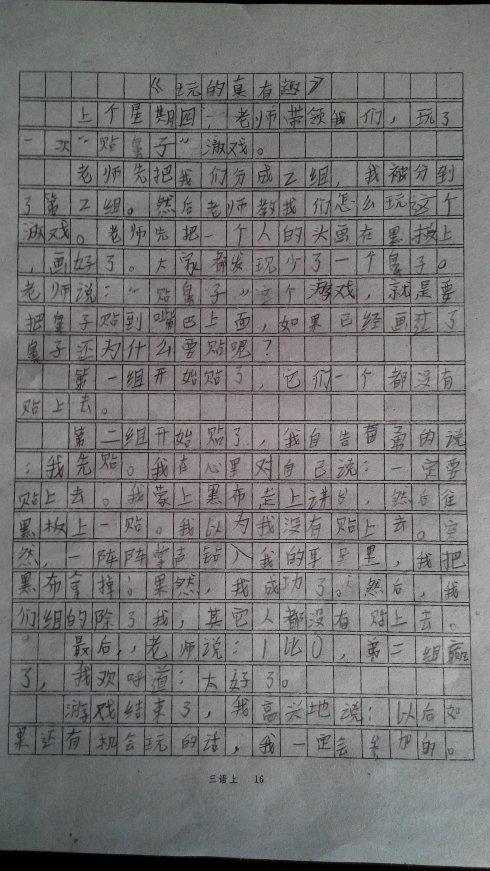 《玩的真有趣》
上个星期四：老师带领我们，玩了
一次“贴鼻子”游戏。
老师先把我们分成2组，我被分到
了第2组。然后老师教我们怎么玩这个
游戏。老师先把一个人的头画在黑板上
，画好了。大家都发现少了一个鼻子。
老师说：“贴鼻子”这个游戏，就是要
把鼻子贴到嘴巴上面，如果已经画过了
鼻子还为什么要贴呢？
第一组开始贴了，它们一个都没有
贴上去。
第二组开始贴了，我自告奋勇的说
：我先贴。我在心里对自己说：一定要
贴上去。我蒙上黑布走上讲台，然后往
黑板上一贴。我以为我没有贴上去。突
然，一阵阵掌声钻入我的耳朵里，我把
黑布拿掉：果然，我成功了。然后，我
们组的除了我，其它人都没有贴上去。
最后，老师说：1比0，第二组赢
了，我欢呼道：太好了。
游戏结束了，我高兴地说：以后如
果还有机会玩的话，我一定会参加的。
三语上 16